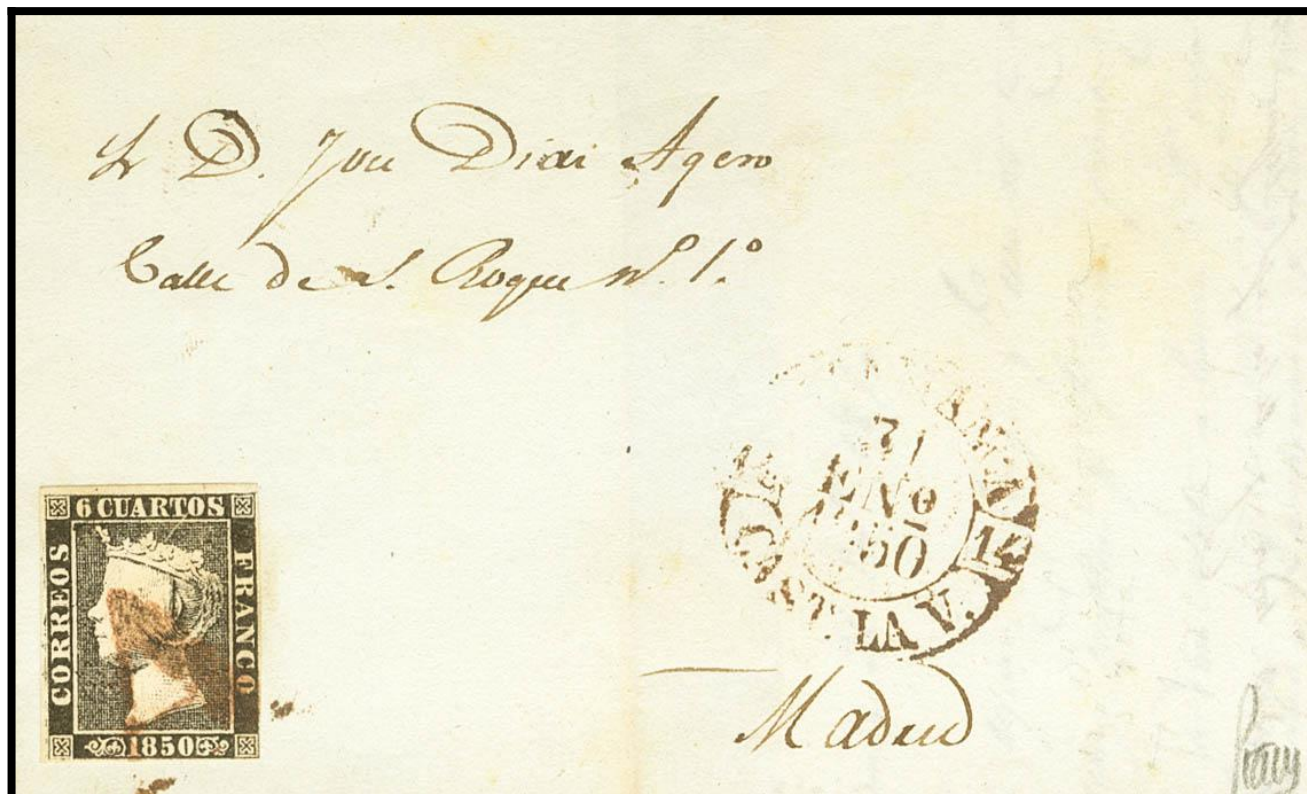 Sr D. Jose Diaz Agero
Calle de S. Roque Nº. 1º
31
ENO
1850
CAST. LA V.
Madrid
6 CUARTOS
CORREOS
FRANCO
1850